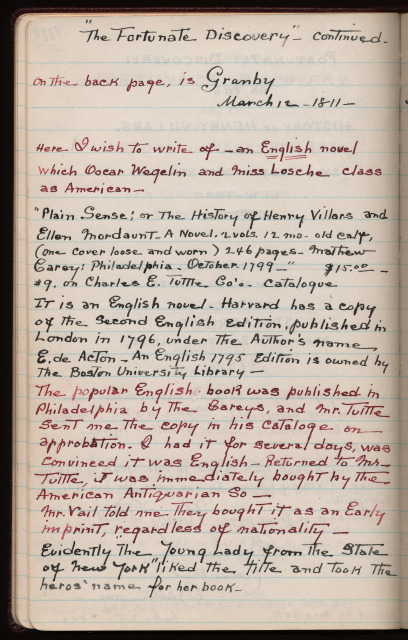 "The Fortunate Discovery" - continued -
on the back page, is Granby
March 12 - 1811 -
Here I wish to write of - an English novel
which Oscar Wegelin and Miss Losche class
as American -
"Plain Sense; or The History of Henry Villars and
Ellen Mordaunt. A Novel. 2 vols. 12 mo. old calf,
(one cover loose and worn) 246 pages - Mathew
Carey: Philadelphia - October 1799 -" $15.00 -
#9. on Charles E. Tuttle Co's. Catalogue
It is an English novel - Harvard has a copy
of the Second English Edition, published in
London in 1796, under the Author's name
E. de Acton - An English 1795 Edition is owned by
The Boston University Library -
The popular English book was published in
Philadelphia by the Careys, and Mr. Tuttle
Sent me the copy in his Cataloge on
approbation. I had it for several days, was
Convinced it was English - Returned to Mr -
Tuttle, it was immediately bought by the
American Antiquarian So -
Mr. Vail told me they bought it as an Early
imprint, regardless of nationality -
Evidently The "Young Lady from the State
of New York" liked the title and took the
heros' name for her book -